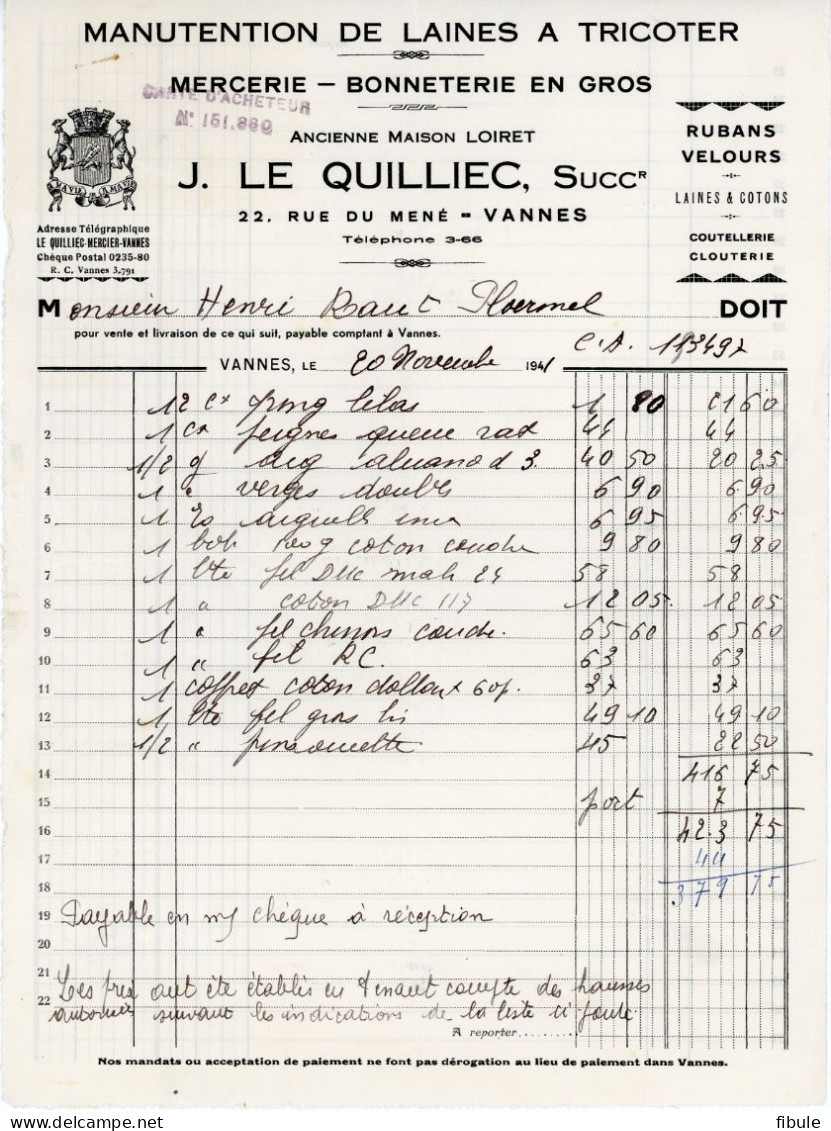 MANUTENTION DE LAINES A TRICOTER
MERCERIE – BONNETERIE EN GROS
CARTE D'ACHETEUR
N° 151.860
ANCIENNE MAISON LOIRET
J. LE QUILLIEC, SUCCR
22, RUE DU MENÉ - VANNES
Téléphone 3-66
RUBANS
VELOURS
LAINES & COTONS
COUTELLERIE
CLOUTERIE
MA VIE A MA
Adresse Télégraphique
LE QUILLIEC-MERCIER-VANNES
Chèque Postal 0235-80
R. C. Vannes 3.791
Monsieur Henri Raut Ploermel DOIT
pour vente et livraison de ce qui suit, payable comptant à Vannes.
C.A. 113497
VANNES, LE 20 Novembre 1941
1 12 Cx lilas 1 80 21 60
2 1 Cx peignes queue rat 44 44
3 1/2 g aig 3. 40 50 20 25
4 1 " verges doubles 6 90 6 90
5 1 aiguille 6 95 6 95
6 1 bob coton coudre 9 80 9 80
7 1 bte fil DMC 24 58 58
8 1 " coton DMC 117 12 05 12 05
9 1 " fil chinois coudre. 65 60 65 60
10 1 " fil RC. 63 63
11 1 coffret coton 60f. 37 37
12 1 bte fil gros lin 49 10 49 10
13 1/2 " 45 22 50
14 416 75
15 port 7
16 423 75
17 44
18 379 75
19 Payable en chèque à réception
20
21 Les prix ont été établis en tenant compte des hausses
22 autorisées suivant les indications de la liste ci jointe
A reporter
Nos mandats ou acceptation de paiement ne font pas dérogation au lieu de paiement dans Vannes.
fibule